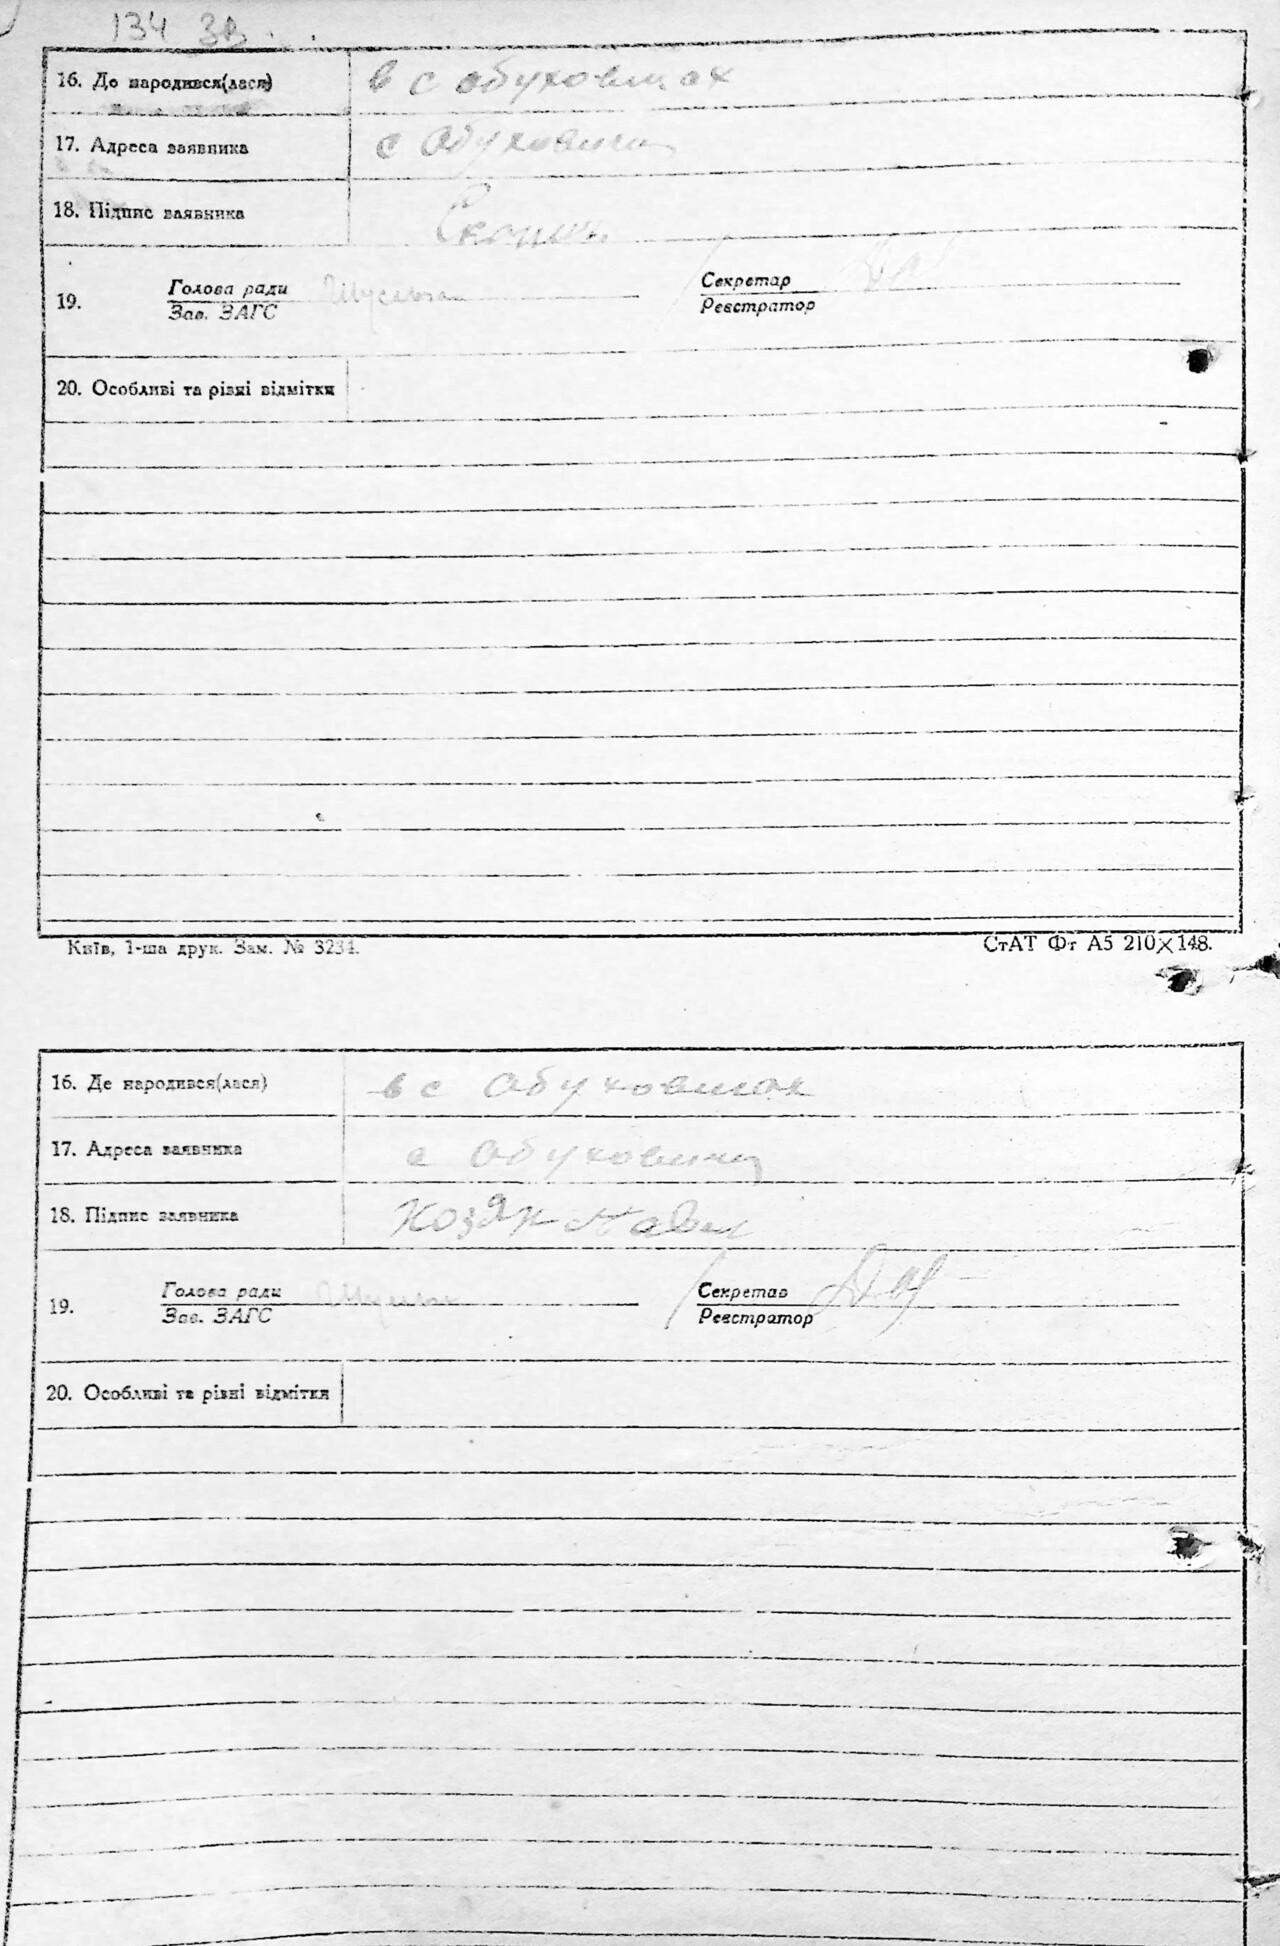 134 зв.
16. Де народився(лася) в с обуховщах
17. Адреса заявника с Обуховичі
18. Підпис заявника
19. Голова ради Секретар
Зав. ЗАГС Реєстратор
20. Особливі та різні відмітки
Київ, 1-ша друк. Зам. № 3234. СтАТ Фт А5 210×148.
16. Де народився(лася) в с Обуховщах
17. Адреса заявника с Обуховичі
18. Підпис заявника Козян
19. Голова ради Секретар
Зав. ЗАГС Реєстратор
20. Особливі та різні відмітки